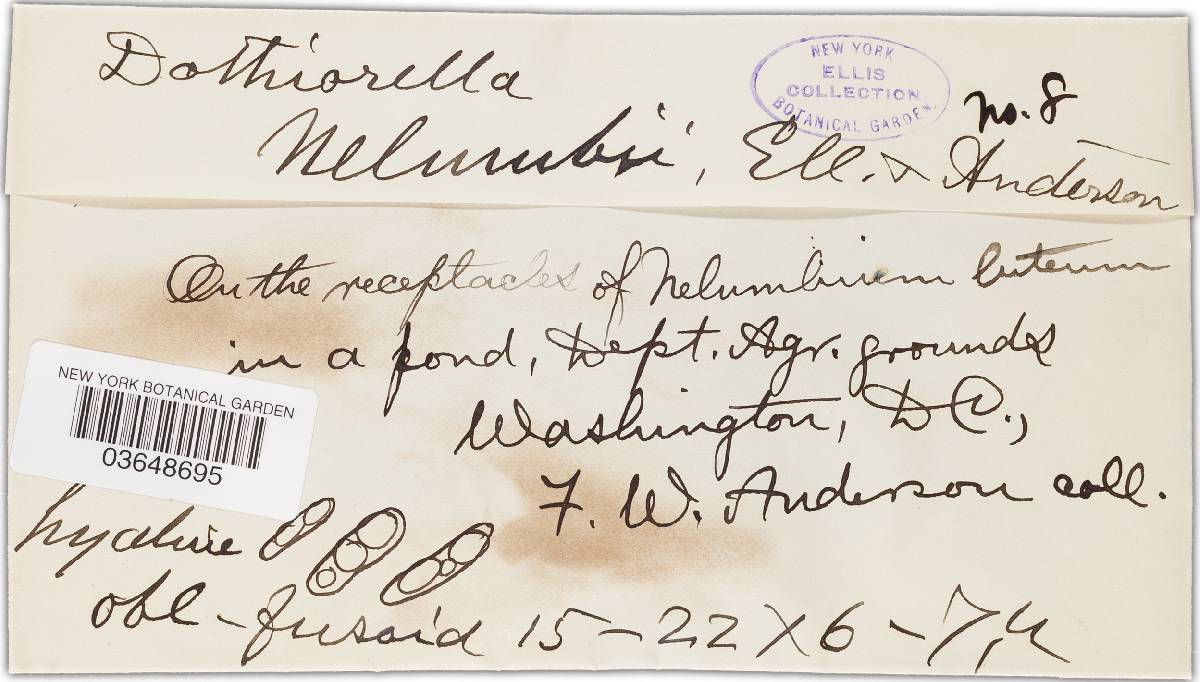 Dothiorella
NEW YORK
ELLIS
COLLECTION
BOTANICAL GARDEN.
no. 8
Nelumbii, Ell. & Anderson
On the receptacles of Nelumbium luteum
in a pond, Dept. Agr. grounds
Washington, D.C.,
F. W. Anderson coll.
NEW YORK BOTANICAL GARDEN
03648695
hyaline
obl-fusoid 15-22 X 6-7µ